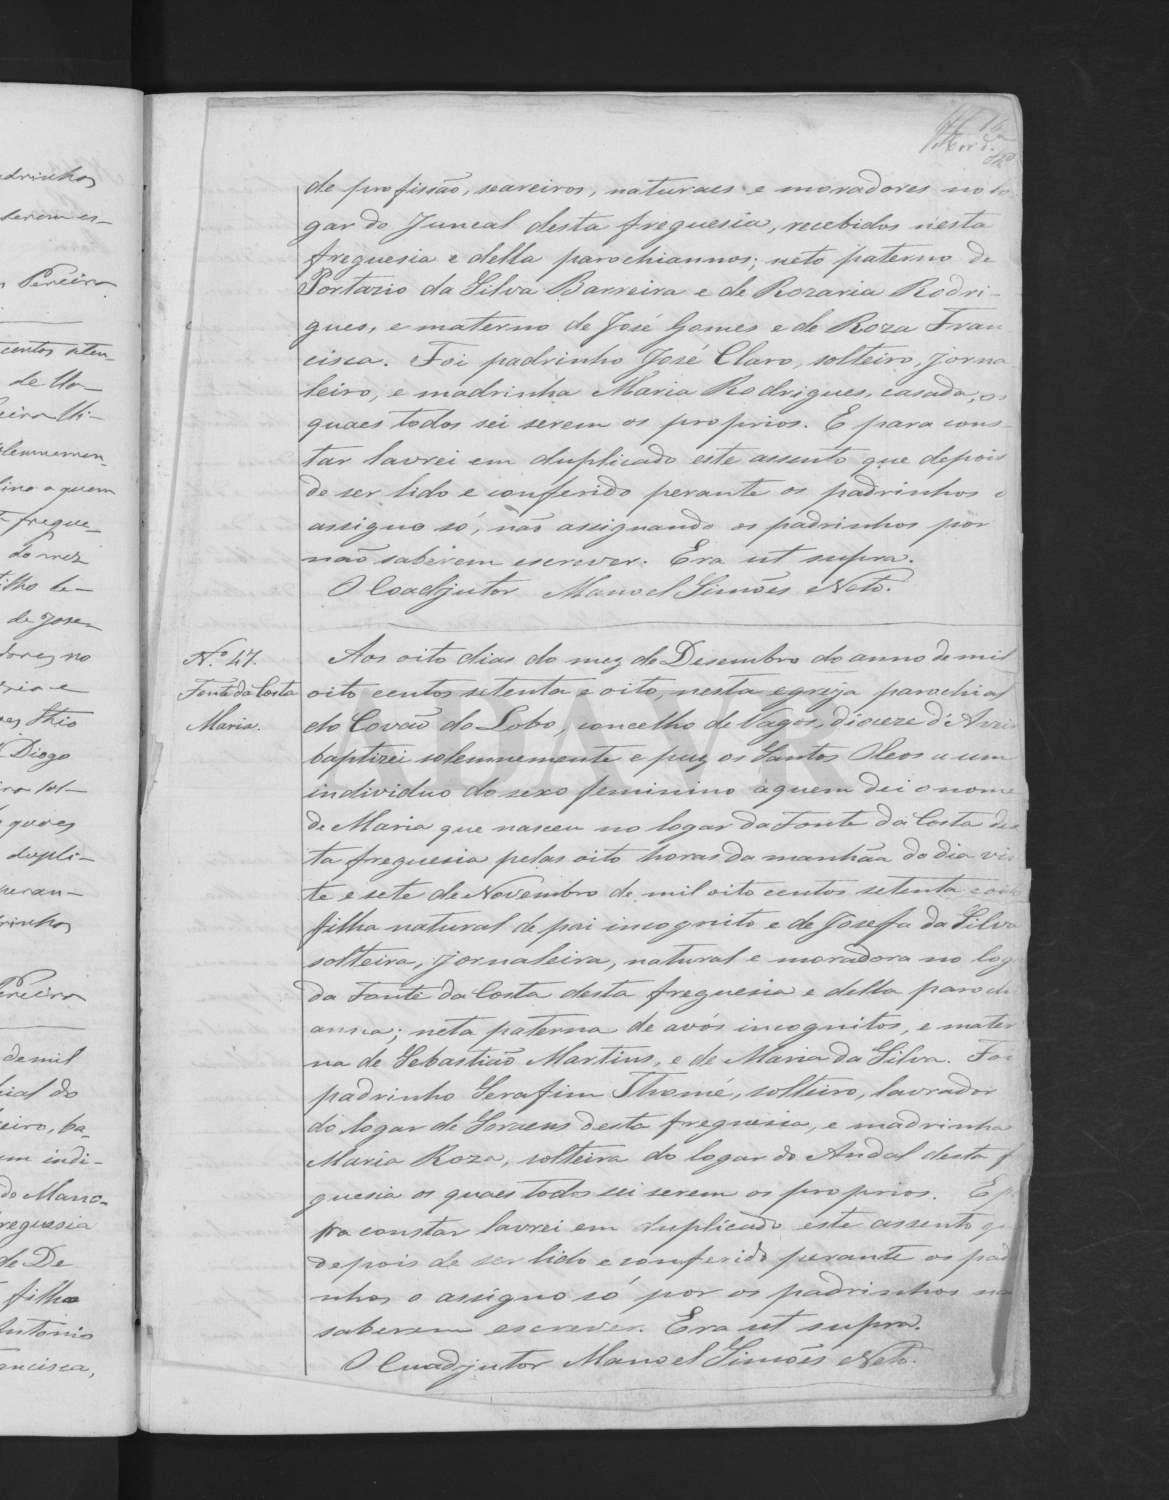 de profissão, seareiros, naturaes e moradores no lo
gar do Juncal desta freguesia, recebidos nesta
freguesia e della parochiannos; neto paterno de
da Silva Barreira e de Rozaria Rodri-
gues, e materno de José Gomes e de Roza Fran
cisca. Foi padrinho José Claro, solteiro, jorna
leiro, e madrinha Maria Rodrigues, casada, os
quaes todos sei serem os proprios. E para cons-
tar lavrei em duplicado este assento que depois
de ser lido e conferido perante os padrinhos o
assigno só, não assignando os padrinhos por
não saberem escrever. Era ut supra.
O Coadjutor Manoel Simões Neto.
N.º 47.
Fonte da Costa
Maria.
Aos oito dias do mez de Desembro do anno de mil
oito centos setenta e oito, nesta egreja parochial
do Covão do Lobo, concelho de Vagos, diocese d'Avei
baptizei solemnemente e puz os Santos Oleos a um
individuo do sexo feminino a quem dei o nome
de Maria que nasceu no logar da Fonte da Costa des
ta freguesia pelas oito horas da manhãa do dia vin
te e sete de Novembro de mil oito centos setenta e oito
filha natural de pai incognito e de Josefa da Silva
solteira, jornaleira, natural e moradora no log
da Fonte da Costa desta freguesia e della paroch
anna; neta paterna de avós incognitos, e mater
na de Sebastião Martins, e de Maria da Silva. Foi
padrinho Serafim Thomé, solteiro, lavrador
do logar de desta freguesia, e madrinha
Maria Roza, solteira do logar do Andal desta f
guesia os quaes todos sei serem os proprios. E p
ra constar lavrei em duplicado este assento q
depois de ser lido e conferido perante os pad
nhos o assigno só por os padrinhos na
saberem escrever. Era ut supra.
O Cuadjutor Manoel Simões Neto.